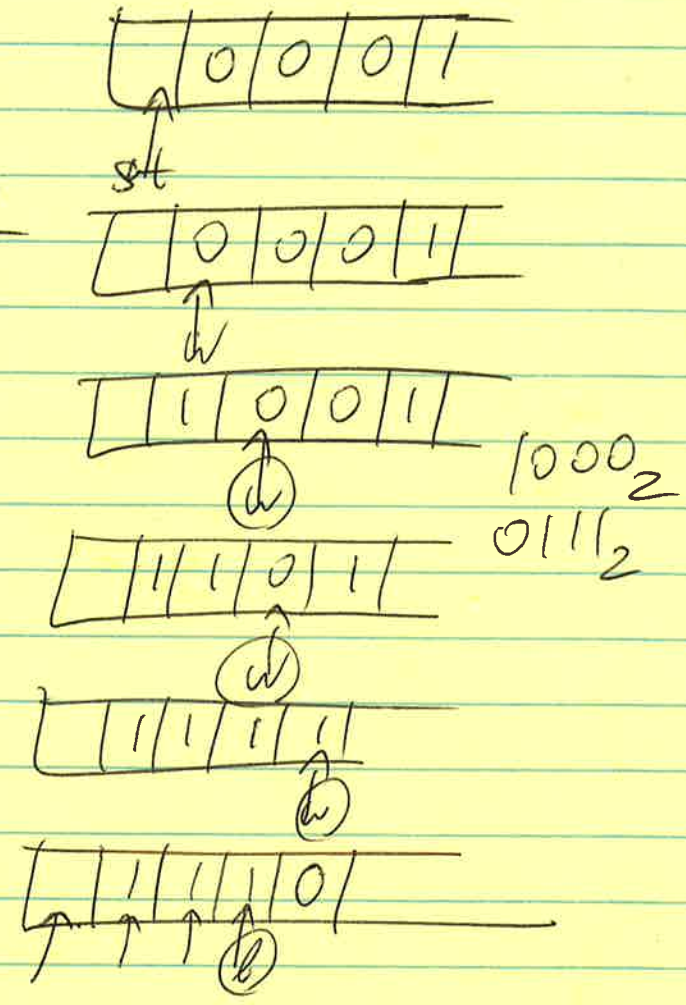 0 0 0 1
0 0 0 1
1 0 0 1
1000₂
0111₂
1 1 0 1
1 1 1 1
1 1 1 0